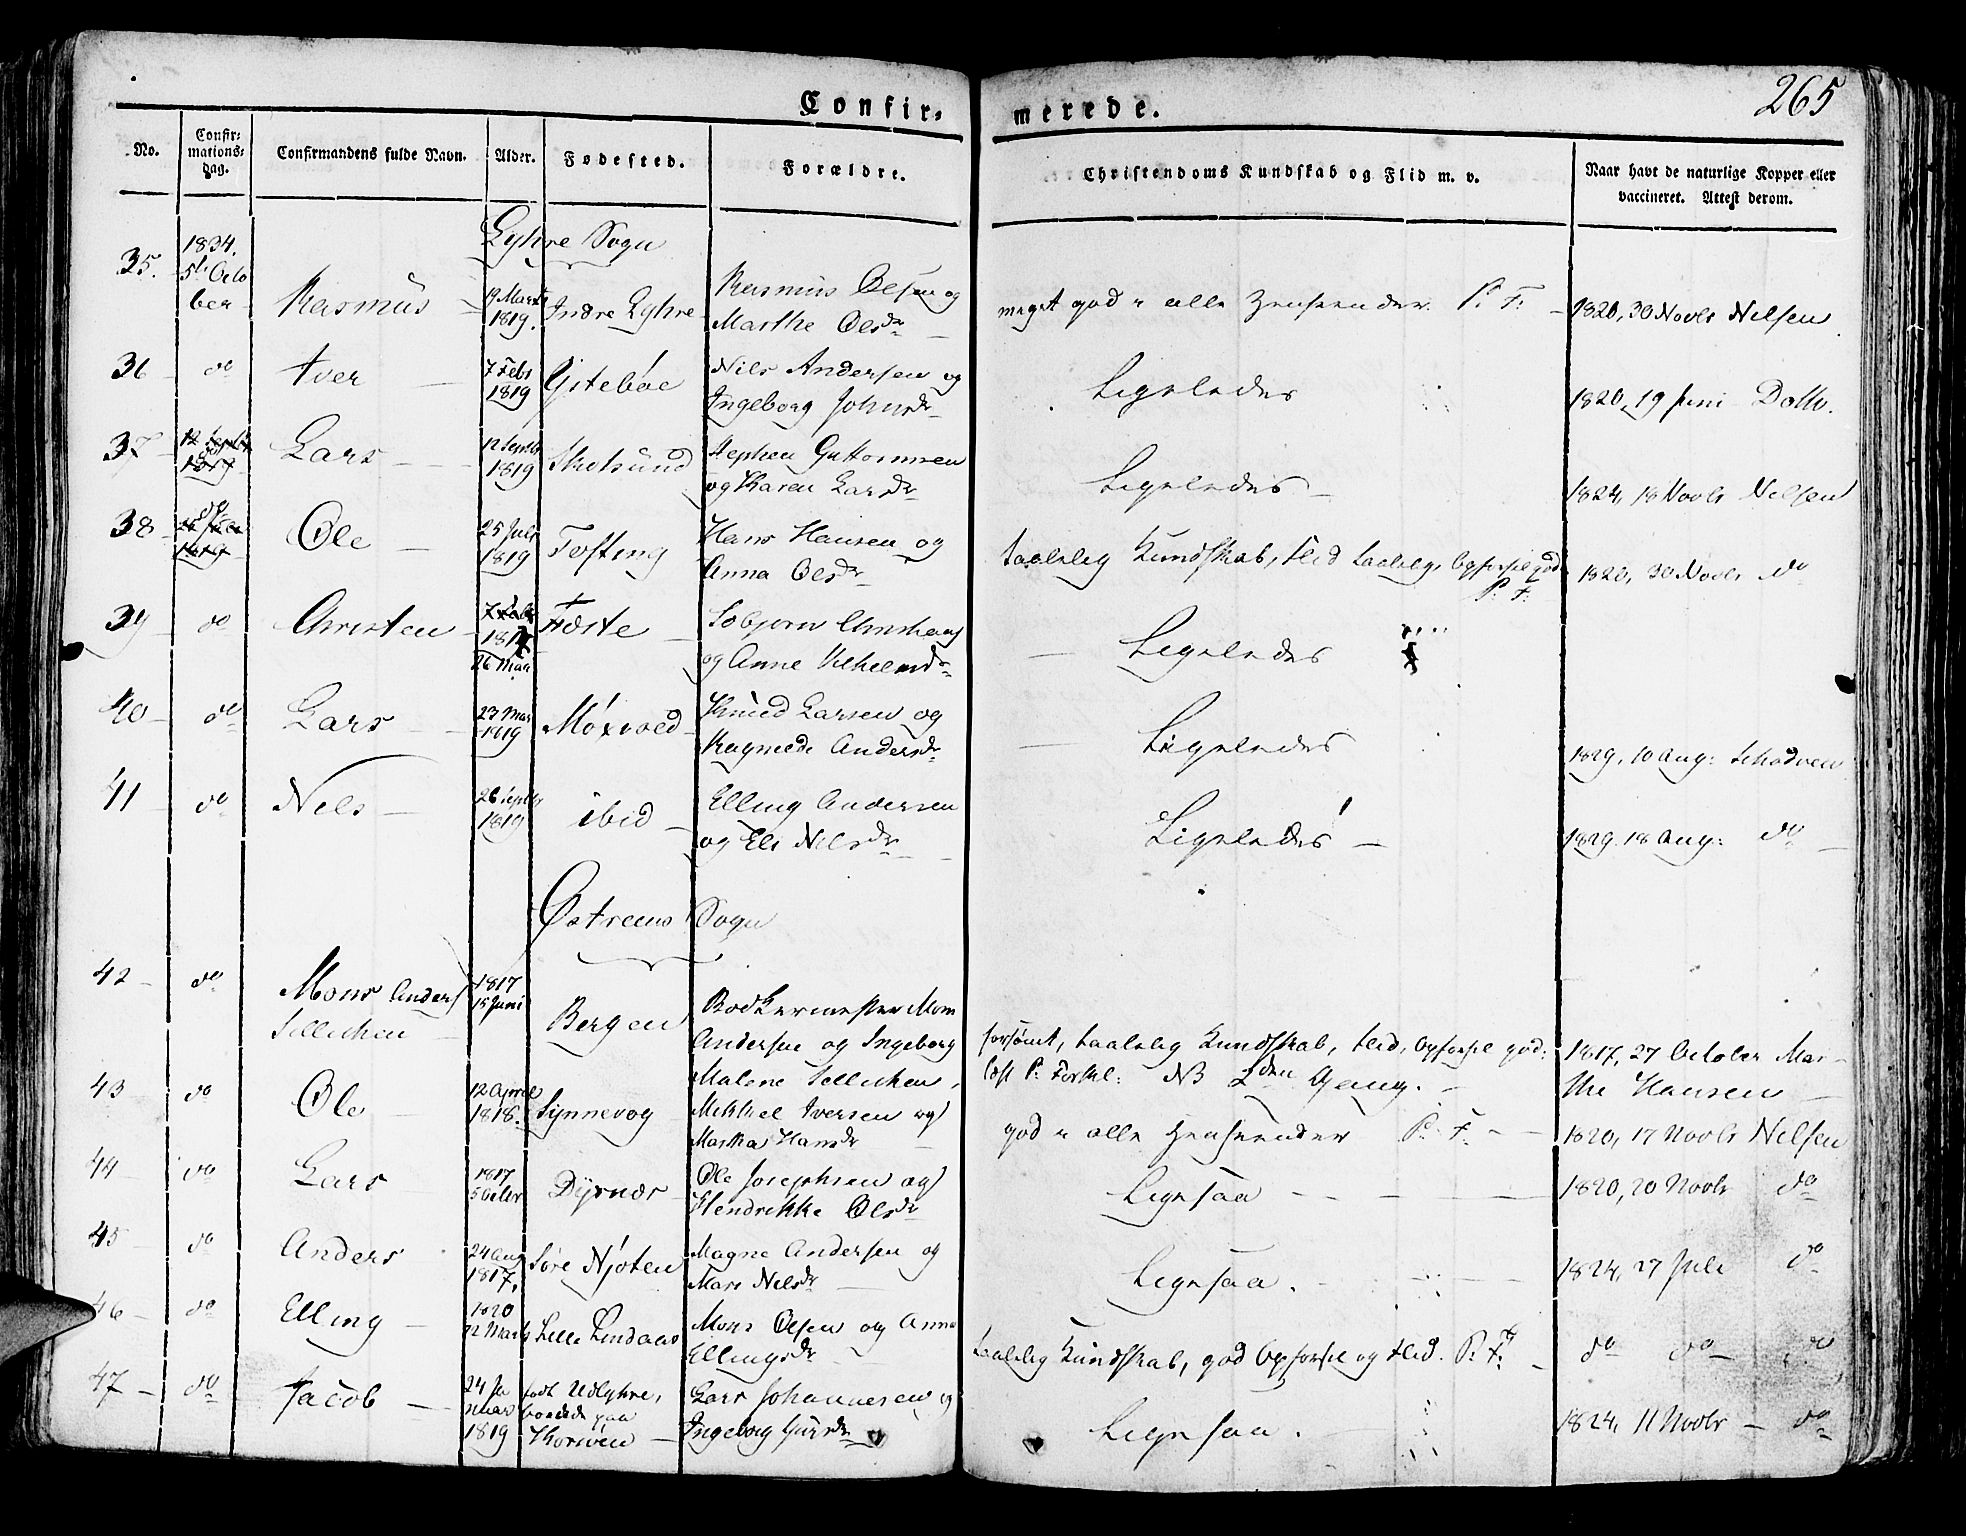 265
Confirmerede.
No. Confirmationsdag. Confirmandens fulde Navn. Alder. Fødested. Forældre. Christendoms Kundskab og Flid m. v. Naar havt de naturlige Kopper eller vaccineret. Attest derom.
Lyhre Sogn
35. 1834. 5te October Rasmus 19 Marts 1819. Indre Lyhre Rasmus Olsen og Marthe Olsdr meget god i alle Henseender. P. F. 1820, 30 Novbr Nilsen
36 do Iver 7 Febr 1819 Gjstebøe Nils Andersen og Ingeborg Johnsdr Ligeledes 1820, 19 Juni Dotto.
37 12 Septbr 1819 do Lars 12 Septbr 1819 Skotsund Stephen Guttormsen og Karen Larsdr Ligeledes 1824, 18 Novbr Nilsen
38 25 Juli 1819 do Ole 25 Juli 1819 Tofting Hans Hansen og Anna Olsdr taalelig Kundskab, Flid taalelig, Opførsel god P. F. 1820, 30 Novbr do
39 do Christen 7 Febr 1817 26 Mai Fæste og Anne Ligeledes
40 do Lars 23 Mar 1819 Moxvold Knud Larsen og Ragnede Andersdr Ligeledes 1829, 10 Aug:
41 do Nils 26 Septbr 1819 ibid Elling Andersen og Eli Nilsdr Ligeledes 1829. 18 Aug: do
Østreems Sogn
42 do Mons Anders Sellichen 1817 15 Juni Bergen Bødkermester Mons Andersen og Ingeborg Malene Sellichen forsømt, taalelig Kundskab, Flid, Opførsel god: NB 2den Gang. 1817, 27 October Marthe Hansen
43 do Ole 12 April 1818. Synnevog Mikkel Iversen og Martha Hansdr god i alle Henseender P. F. 1820, 17 Novbr Nilsen
44 do Lars 1817 5 Octbr Dyrnæs Ole Josephsen og Hendrikke Olsdr Ligesaa 1820, 20 Novbr do
45 do Anders 24 Aug 1817. Søre Njøten Magne Andersen og Mari Nilsdr Ligesaa. 1824, 27 Juli do
46 do Elling 1820 12 Marts Lille Lindaas Mons Olsen og Anna Ellingsdr taalelig Kundskab, god Opførsel og Flid. P. F. do do do
47 do Jacob 24 Januar 1819 født Udlyhre, boende paa Lars Johannesen og Ingeborg Ligesaa. 1824, 11 Novbr do